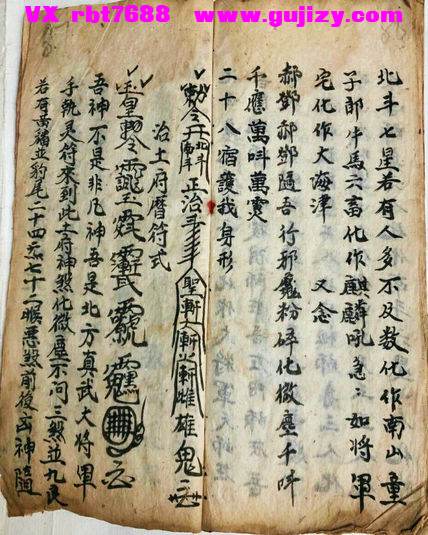 VX rbt7688 www.gujizy.com
北斗七星若有人多不及数化作南山童
子郎牛馬六畜化作麒麟吼急〻如将軍
宅化作大海津 又念
郝鄧郝鄧隨吾行邪鬼粉碎化微塵千呌
千應萬呌萬灵
二十八宿護我身形
北斗 南斗 正治
雄鬼
治土府曆符式
吾神不是非凡神吾是北方真武大将軍
手執灵符來到此土府神煞化微塵不问三煞並九良
若有黄旛並豹尾二十四炁七十二候惡煞前後凶神隨